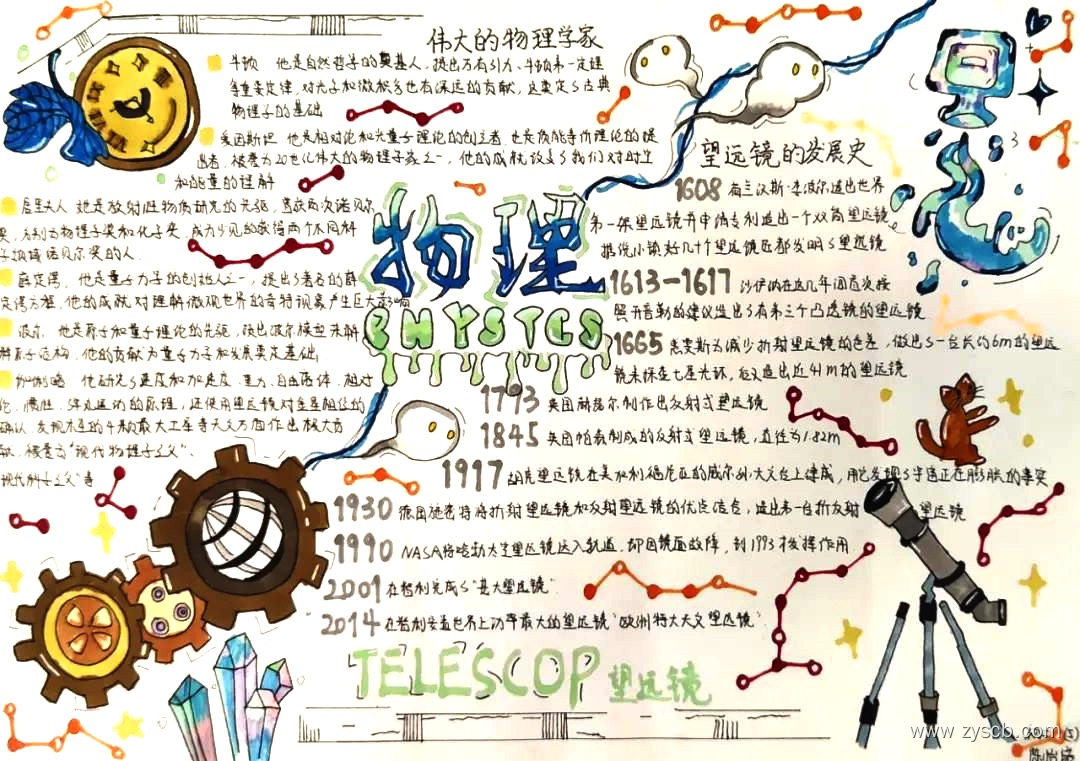 伟大的物理学家
牛顿 他是自然哲学的奠基人，提出万有引力、牛顿第一定理
等重要定律，对光学和微积分也有深远的贡献，这奠定了古典
物理学的基础
爱因斯坦 他是相对论和量子理论的创立者 也是质能等价理论的提
出者，被誉为20世纪伟大的物理学家之一，他的成就改变了我们对时空
和能量的理解
居里夫人 她是放射性物质研究的先驱，曾获两次诺贝尔
奖，分别为物理学奖和化学奖，成为少见的获得两个不同科
学领域诺贝尔奖的人.
薛定谔，他是量子力学的创始人之一，提出了著名的薛
定谔方程，他的成就对理解微观世界的奇特现象产生巨大影响
玻尔，他是原子和量子理论的先驱，提出玻尔模型来解
释原子结构，他的贡献为量子力学和发展奠定基础
伽利略 他研究了速度和加速度、重力、自由落体、相对
论、惯性、弹丸运动的原理，还使用望远镜对金星相位的
确认 发现木星的4颗最大卫星等天文方面作出极大贡
献，被誉为“现代物理学之父”、
“现代科学之父”等
物理
PHYSICS
望远镜的发展史
1608 荷兰汉斯·李波尔造出世界
第一架望远镜并申请专利造出一个双筒望远镜
据说小镇好几十个望远镜匠都发明了望远镜
1613-1617 沙伊纳在这几年间首次按
照开普勒的建议造出了有第三个凸透镜的望远镜
1665 惠更斯为减少折射望远镜的色差，做出了一台长约6m的望远
镜来探查土星光环，后又造出近41m的望远镜
1793 英国赫歇尔制作出反射式望远镜
1845 英国帕森制成的反射式望远镜，直径为1.82m
1917 胡克望远镜在美加利福尼亚的威尔逊天文台上建成，用它发现了宇宙正在膨胀的事实
1930 德国施密特将折射望远镜和反射望远镜的优点结合，造出第一台折反射望远镜
1990 NASA将哈勃太空望远镜送入轨道，却因镜面故障，到1993才发挥作用
2001 在智利完成了“甚大望远镜”
2014 在智利安置世界上功率最大的望远镜“欧洲特大天文望远镜”.
TELESCOP 望远镜
www.zyscb.com